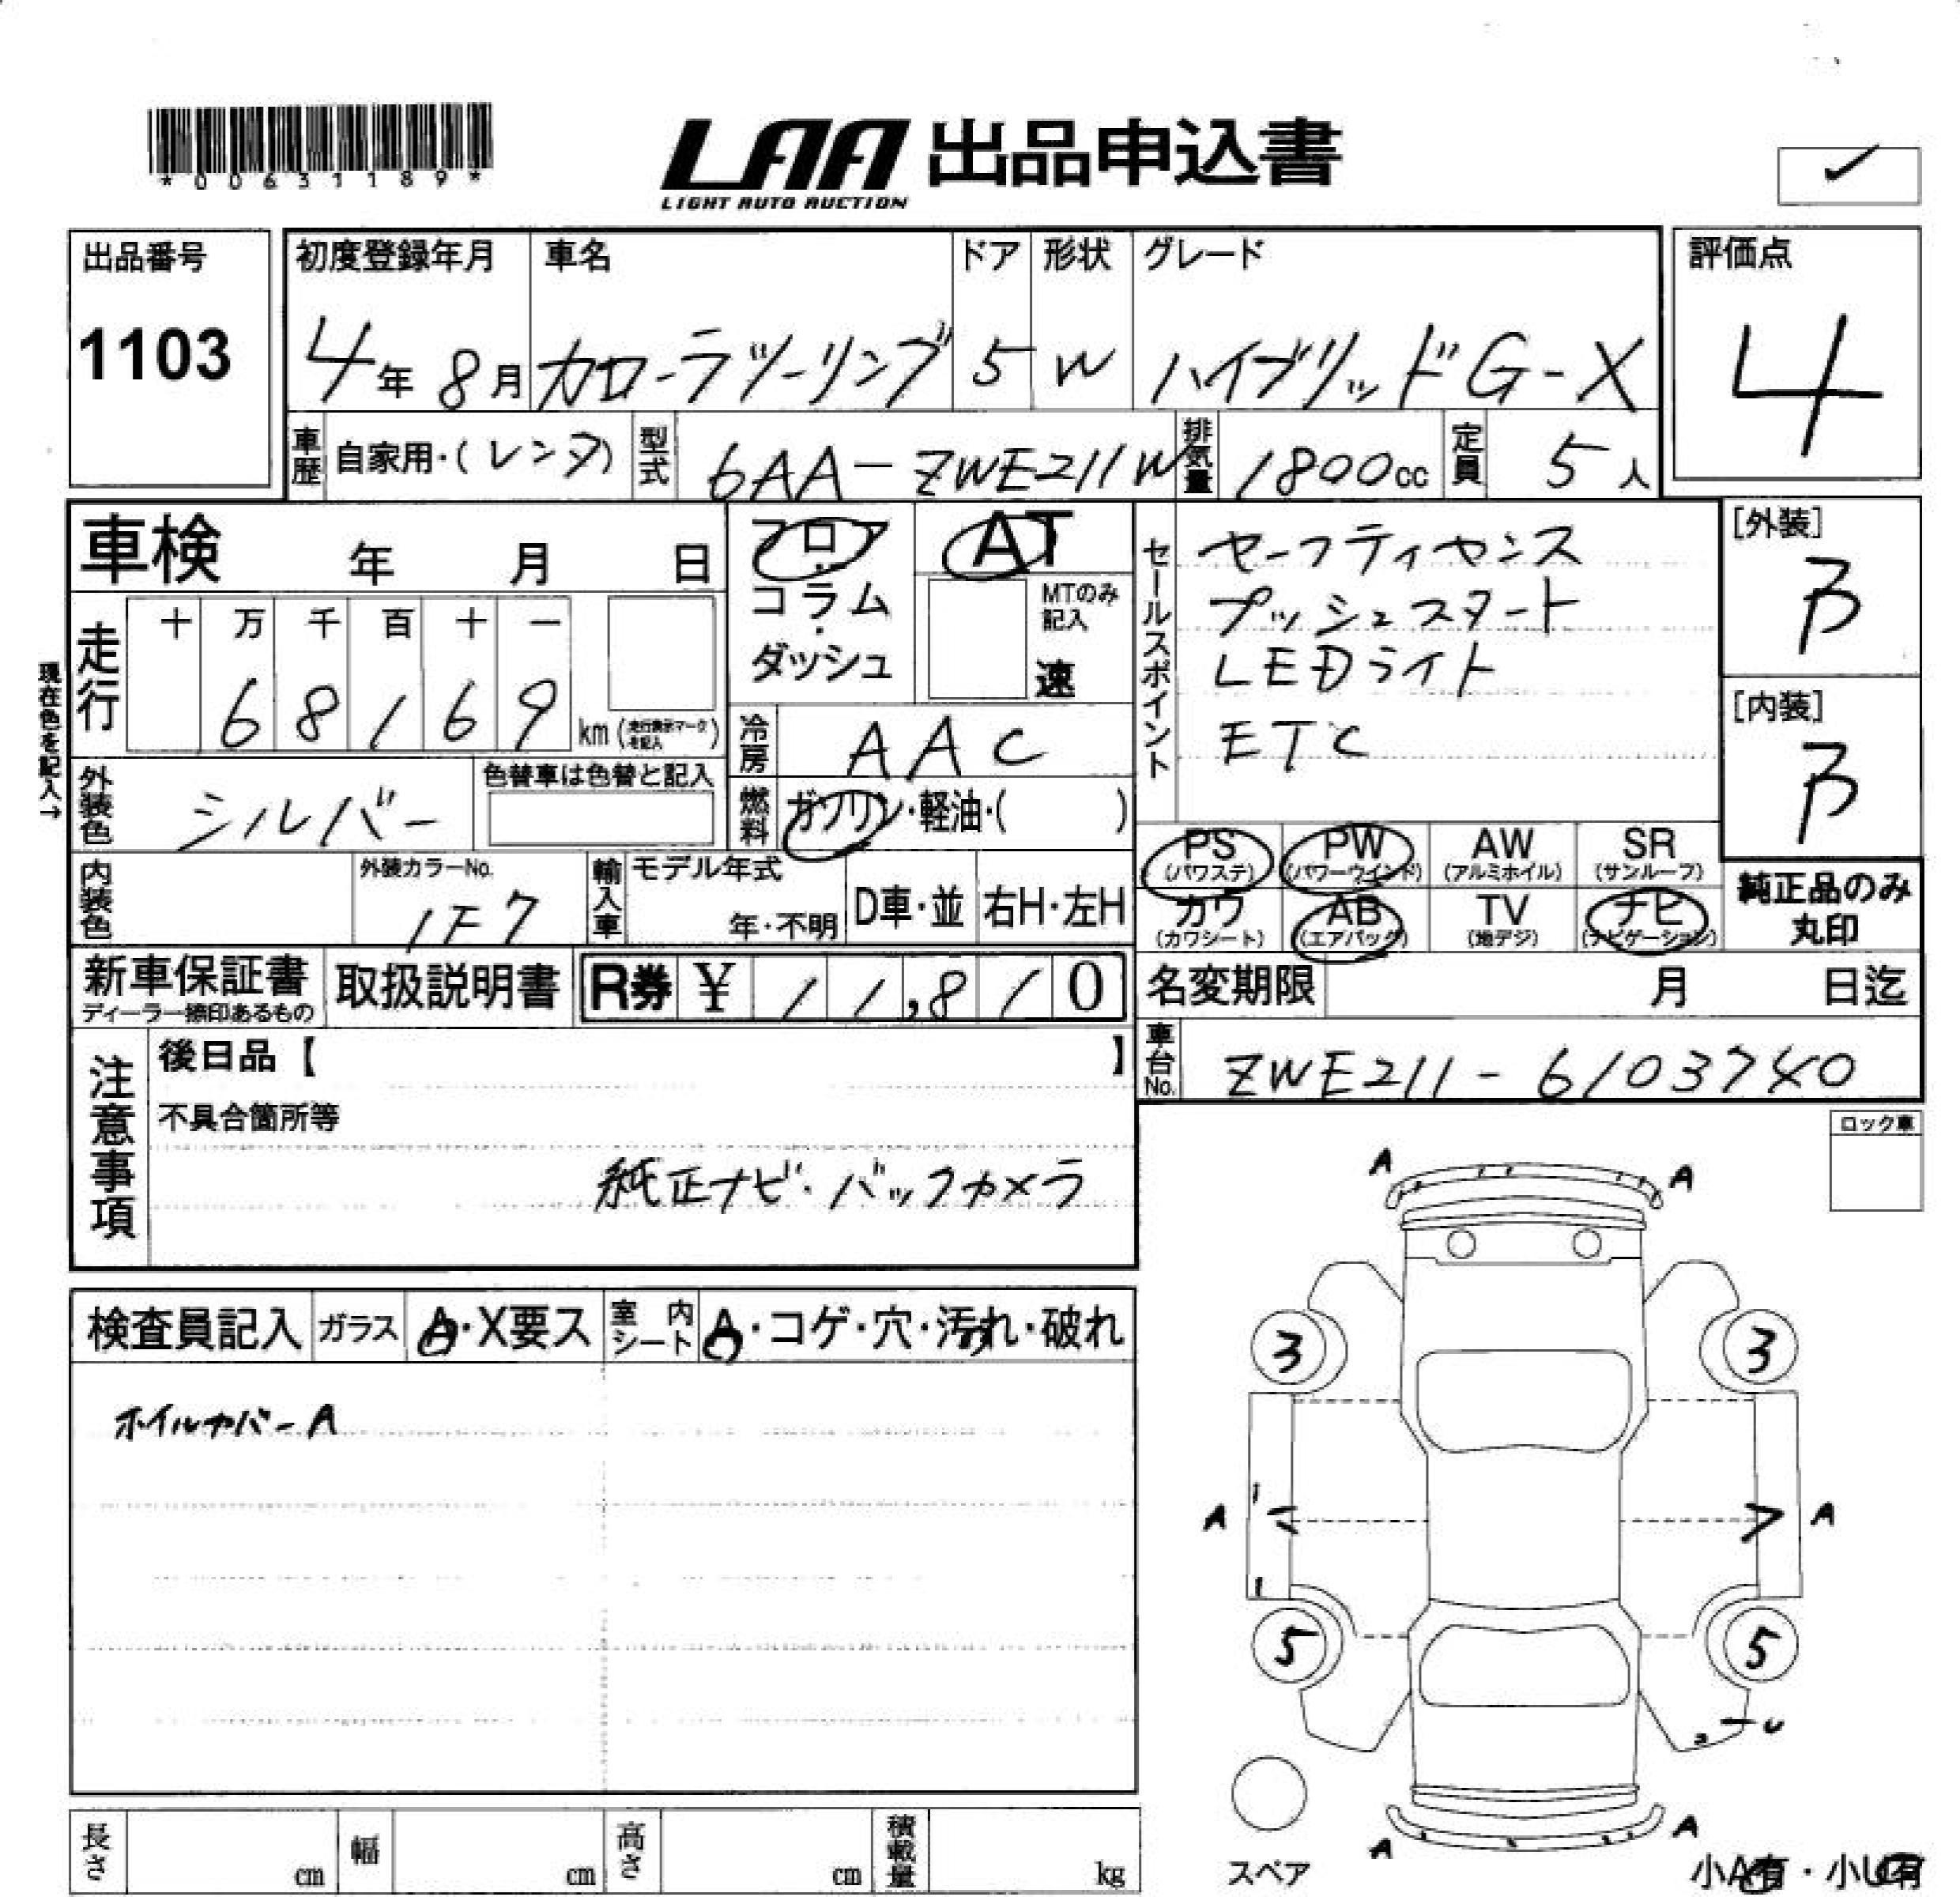 *00631189*
LAA 出品申込書
LIGHT AUTO AUCTION
出品番号
1103
初度登録年月
4年 8月
車名
カローラツーリング
ドア
5
形状
W
グレード
ハイブリッドG-X
評価点
4
車歴
自家用・(レンタ)
型式
6AA-ZWE211W
排気量
1800cc
定員
5人
車検 年 月 日
フロア・コラム・ダッシュ
AT
MTのみ記入
速
走行
十 万 千 百 十 一
6 8 1 6 9 km(走行表示マークを記入)
現在色を記入→
外装色
シルバー
色替車は色替と記入
冷房
AAC
燃料
ガソリン・軽油・( )
内装色
外装カラーNo.
1F7
輸入車
モデル年式
年・不明
D車・並
右H・左H
新車保証書
ディーラー捺印あるもの
取扱説明書
R券 ¥ 11,810
セールスポイント
セーフティセンス
プッシュスタート
LEDライト
ETC
[外装]
B
[内装]
B
PS
(パワステ)
PW
(パワーウインド)
AW
(アルミホイル)
SR
(サンルーフ)
カワ
(カワシート)
AB
(エアバック)
TV
(地デジ)
ナビ
(ナビゲーション)
純正品のみ
丸印
名変期限 月 日迄
車台No.
ZWE211-6103740
注意事項
後日品【 】
不具合箇所等
純正ナビ・バックカメラ
検査員記入
ガラス
A・X要ス
室内シート
A・コゲ・穴・汚れ・破れ
ホイルカバーA
ロック車
A A
3 3
A A
5 5
U
A A
スペア
小A有・小U有
長さ cm
幅 cm
高さ cm
積載量 kg